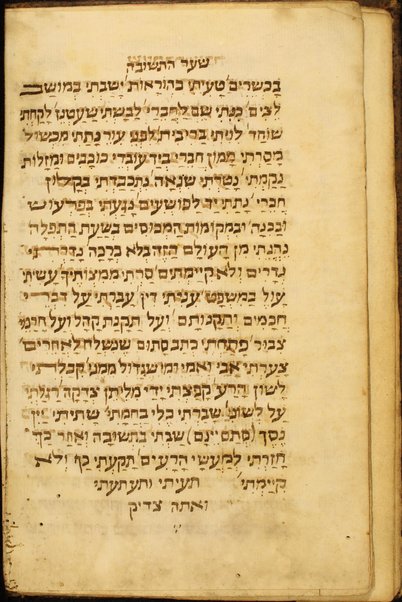 שער התשובה
בכשרים׳ טעיתי בהוראות׳ ישבתי במושב
לצים׳ כניתי שם לחברי׳ לבשתי שעטנז׳ לקחתי
שוחד׳ לויתי בריבית׳ לפני עור נתתי מכשול
מסרתי ממון חברי ביד עובדי כוכבים ומזלות
נקמתי׳ נטרתי שנאה׳ נתכבדתי בקלון
חברי׳ נתתי יד לפושעים׳ נגעתי בפרעוש
ובכנה׳ ובמקומות המכוסים בשעת התפלה
נהניתי מן העולם הזה בלא ברכה׳ נדרתי
נדרים ולא קיימתים׳ סרתי ממצותיך׳ עשיתי
עול במשפט׳ עניתי דין׳ עברתי על דברי
חכמים ותקנותם׳ ועל תקנת קהל ועל חרמי
צבור׳ פתחתי כתב סתום שנשלח לאחרים
צערתי אבי ואמי ומי שגדול ממני׳ קבלתי
לשון הרע׳ קפצתי ידי מליתן צדקה׳ רגלתי
על לשוני׳ שברתי כלי בחמתי׳ שתיתי יין
נסך (סתם יינם) שבתי בתשובה ואחר כך
חזרתי למעשי הרעים׳ תקעתי כף ולא
קיימתי׳ תעיתי ותעתעתי
ואתה צדיק